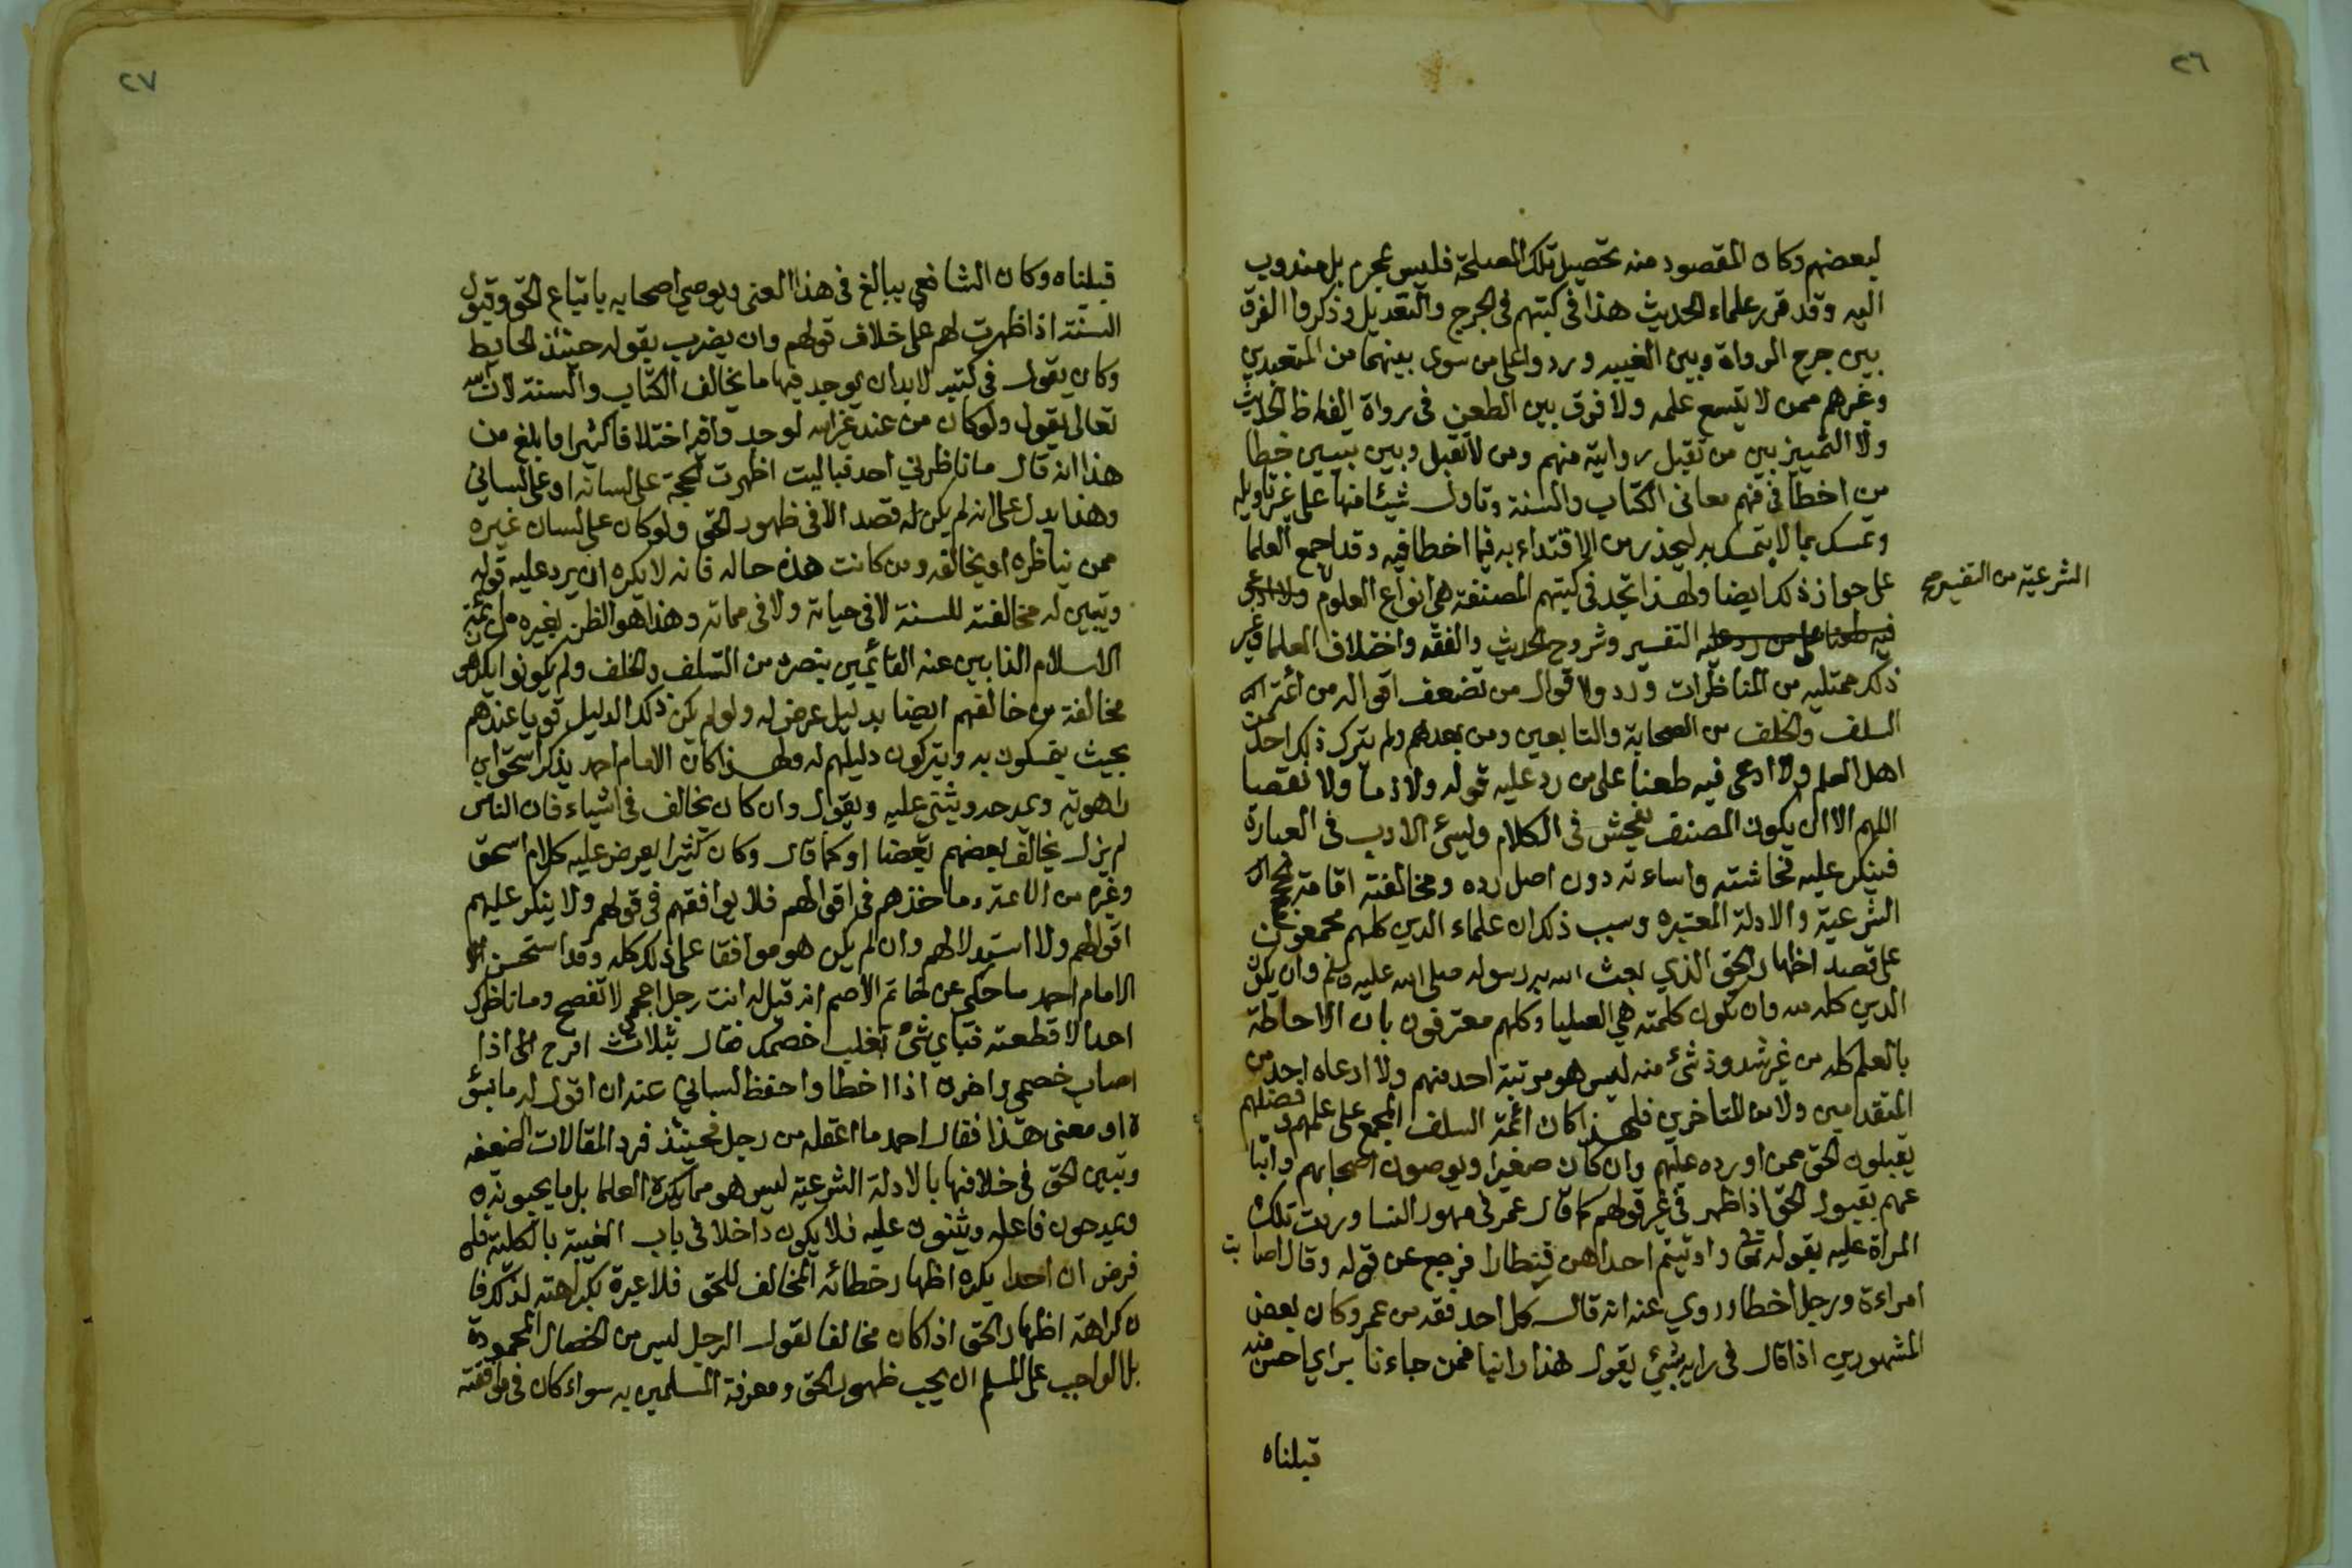 ٢٦
لبعضهم وكان المقصود منه تحصيل تلك المصلحة فليس بمحرم بل مندوب
اليه وقد قرر علماء الحديث هذا فى كتبهم فى الجرح والتعديل وذكروا الفرق
بين جرح الرواة وبين الغيبه وردوا على من سوى بينهما من المتعبدين
وغيرهم ممن لا يتسع علمه ولا فرق بين الطعن فى رواة الفاظ الحديث
ولا التمييز بين من تقبل روايته منهم ومن لا تقبل وبين تبيين خطا
من اخطا فى فهم معانى الكتاب والسنة وتاول شيئا منها على غير تاويله
وتمسك بما لا يتمسك به ليحذر من الاقتداء به فيما اخطا فيه وقد اجمع العلما
على جواز ذلك ايضا ولهذا تجد فى كتبهم المصنفة فى انواع العلوم ولا ادعى
الشرعية من التفسير صح
فيه طعنا على من رد عليه التفسير وشروح الحديث والفقه واختلاف العلما وغير
ذلك ممتليه من المناظرات وردوا اقوال من تضعف اقواله من أئمة
السلف والخلف من الصحابة والتابعين ومن بعدهم ولم يترك ذلك احد من
اهل العلم ولا ادعى فيه طعنا على من رد عليه قوله ولا ذما ولا نقصا
اللهم الا ان يكون المصنف يفحش فى الكلام ويسئ الادب فى العبارة
فينكر عليه فحاشته واساءته دون اصل رده ومخالفته اقامة لحجج
الشرعية والادلة المعتبره وسبب ذلك ان علماء الدين كلهم مجمعون
على قصد اظهار الحق الذي بعث الله به رسوله صلى الله عليه وسلم وان يكون
الدين كله لله وان تكون كلمته هي العليا وكلهم معترفون بان الاحاطة
بالعلم كله من غير شذوذ شئ منه ليس هو مرتبة احد منهم ولا ادعاه احد من
المتقدمين ولا من المتاخرين فلهذا كان ائمة السلف المجمع على علمهم وفضلهم
يقبلون الحق ممن اورده عليهم وان كان صغيرا ويوصون اصحابهم واتبا
عهم بقبول الحق اذا ظهر فى غير قولهم كما قال عمر فى مهور النسا وردت تلك
المراة عليه بقوله تعالى واوتيتم احداهن قنطارا فرجع عن قوله وقال اصابت
امراءة ورجل اخطا وروي عنه انه قال كل احد فقه من عمر وكان بعض
المشهورين اذا قال فى رايه بشئ يقول هذا راينا فمن جاءنا براي احسن منه
قبلناه
٢٧
قبلناه وكان الشافعي يبالغ فى هذا المعنى ويوصي اصحابه باتباع الحق وقبول
السنة اذا ظهرت لهم على خلاف قولهم وان يضرب بقوله حينئذ الحايط
وكان يقول فى كتبه لابد ان يوجد فيها ما يخالف الكتاب والسنة لان الله
تعالى يقول ولو كان من عند غير الله لوجدوا فيه اختلافا كثيرا وابلغ من
هذا انه قال ما ناظرني احد فباليت اظهرت الحجة على لسانه او على لساني
وهذا يدل على انه لم يكن له قصد الا فى ظهور الحق ولو كان على لسان غيره
ممن يناظره او يخالفه ومن كانت هذه حاله فانه لا يكره ان يرد عليه قوله
ويتبين له مخالفته للسنة لا فى حياته ولا فى مماته وهذا هو الظن بغيره من أئمة
الاسلام الذابين عنه القائمين بنصره من السلف والخلف ولم يكونوا يكرهون
مخالفة من خالفهم ايضا بدليل عرض له ولو لم يكن ذلك الدليل قويا عندهم
بحيث يتمسكون به ويتركون دليلهم له ولهذا كان الامام احمد يذكر اسحق ابن
راهويه ويمدحه ويثني عليه ويقول وان كان يخالف فى اشياء فان الناس
لم يزل يخالف بعضهم بعضا او كما قال وكان كثيرا يعرض عليه كلام اسحق
وغيره من الائمة وماخذهم فى اقوالهم فلا يوافقهم فى قولهم ولا ينكر عليهم
اقوالهم ولا استدلالهم وان لم يكن هو موافقا على ذلك كله وقد استحسن
الامام احمد ما حكي عن حاتم الاصم انه قيل له انت رجل اعجمي لا تفصح وما ناظرك
احد الا قطعته فباي شئ تغلب خصمك فقال بثلاث افرح اذا
اصاب خصمي واحزن اذا اخطا واحفظ لساني عنه ان اقول له ما يسؤ
ه او معنى هذا فقال احمد ما اعقله من رجل فحينئذ فرد المقالات الضعيفه
وتبيين الحق فى خلافها بالادلة الشرعية ليس هو مما يكره العلما بل ما يحبونه
ويمدحون فاعله ويثنون عليه فلا يكون داخلا فى باب الغيبة بالكلية فلو
فرض ان احدا يكره اظهار خطائه المخالف للحق فلا عبرة بكراهته لذلك فا
ن كراهة اظهار الحق اذا كان مخالفا لقول الرجل ليس من الخصال المحمودة
بل الواجب على المسلم ان يحب ظهور الحق ومعرفة المسلمين به سواء كان فى موافقته